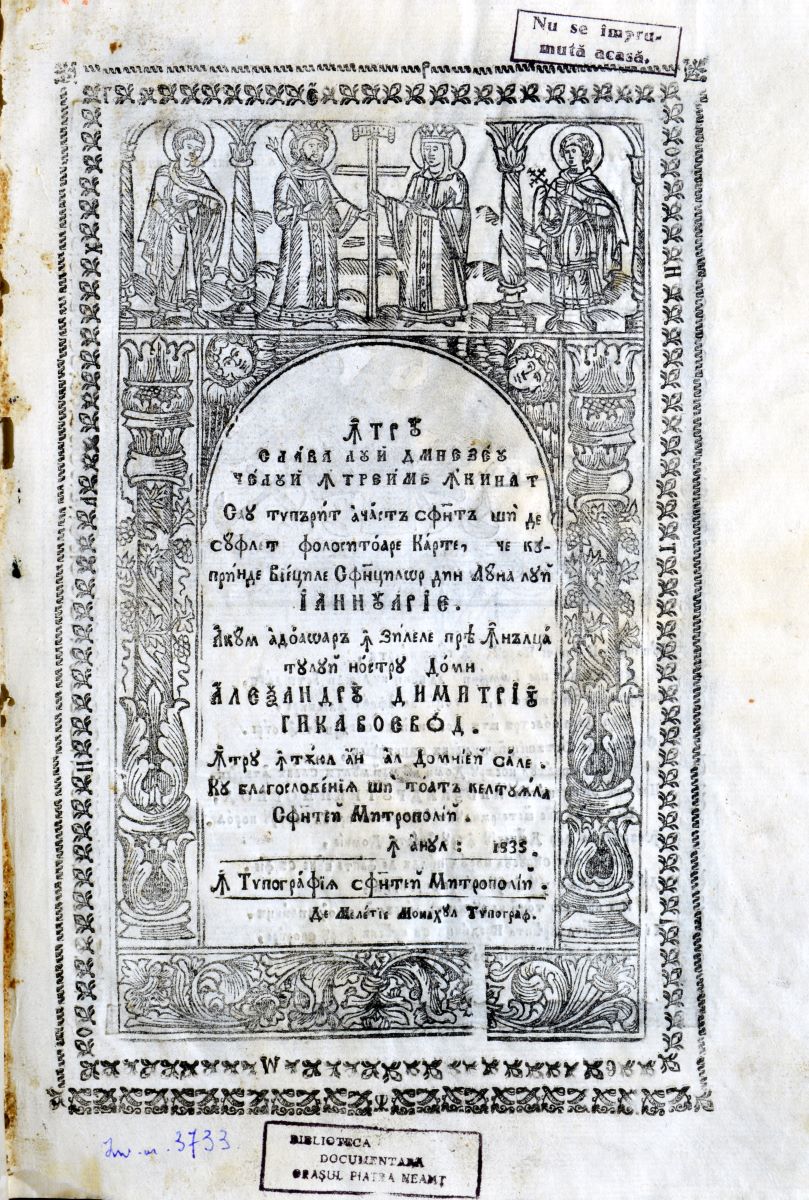 Nu se împru-
mută acasă.
Ꙟтрꙋ
слава лꙋй дмнезеꙋ
чѐлꙋй ꙟ трейме ꙟкинат
Сау тѵпъ́рит ача́стъ сф҃нтъ ши де
сꙋфлет фолоситоаре Ка́рте, че кꙋ-
при́нде Віециле Сфинцилѡр дин Лꙋна лꙋй
ІАННꙊАРІЕ.
Акꙋм адоаѡаръ ꙟ Зи́леле прѐ Ꙟнълца́
тꙋлꙋй но́стрꙋ До́мн
АЛЕѮАНДРꙊ ДИМИТРІꙊ
ГИКА ВОЕВОД.
Ꙟтрꙋ ꙟтѫюл ан ал Домніей сале.
Кꙋ благословенія ши тоатъ келтꙋѧла
Сфинтей Митрополій.
Ꙟ а́нꙋл: 1835.
Ꙟ Тѵпогра́фія сфинтей Митрополій.
Де Меле́тіе Мона́хꙋл Тѵпограф.
Inv. nr. 3733
BIBLIOTECA
DOCUMENTARĂ
ORAȘUL PIATRA NEAMȚ